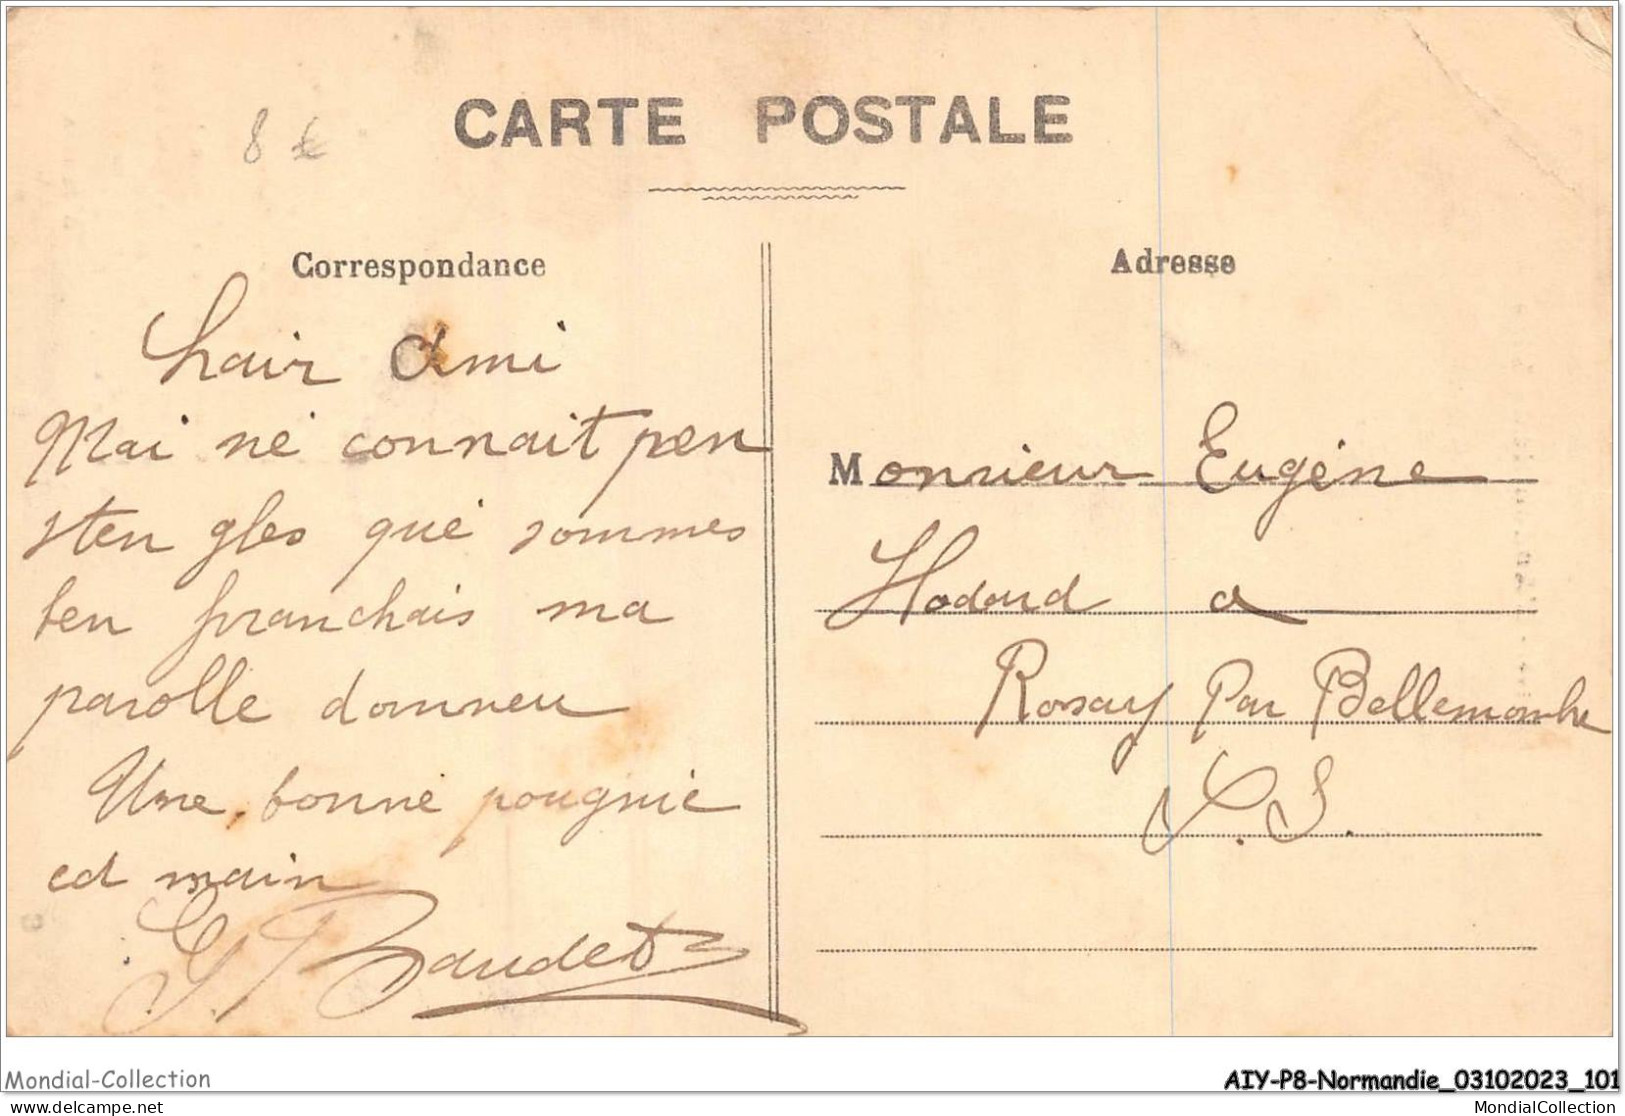 8 €
CARTE POSTALE
Correspondance
Adresse
Chair Ami
Mai né connait pen
sten gles qué sommes
ben franchais ma
parolle donneu
Une bonne pougnie
ed main
G. Baudet
Monsieur Eugéne
Hodard a
Rosay Par Bellemombre
S. I.
Mondial-Collection
AIY-P8-Normandie_03102023_101
delcampe.net
MondialCollection